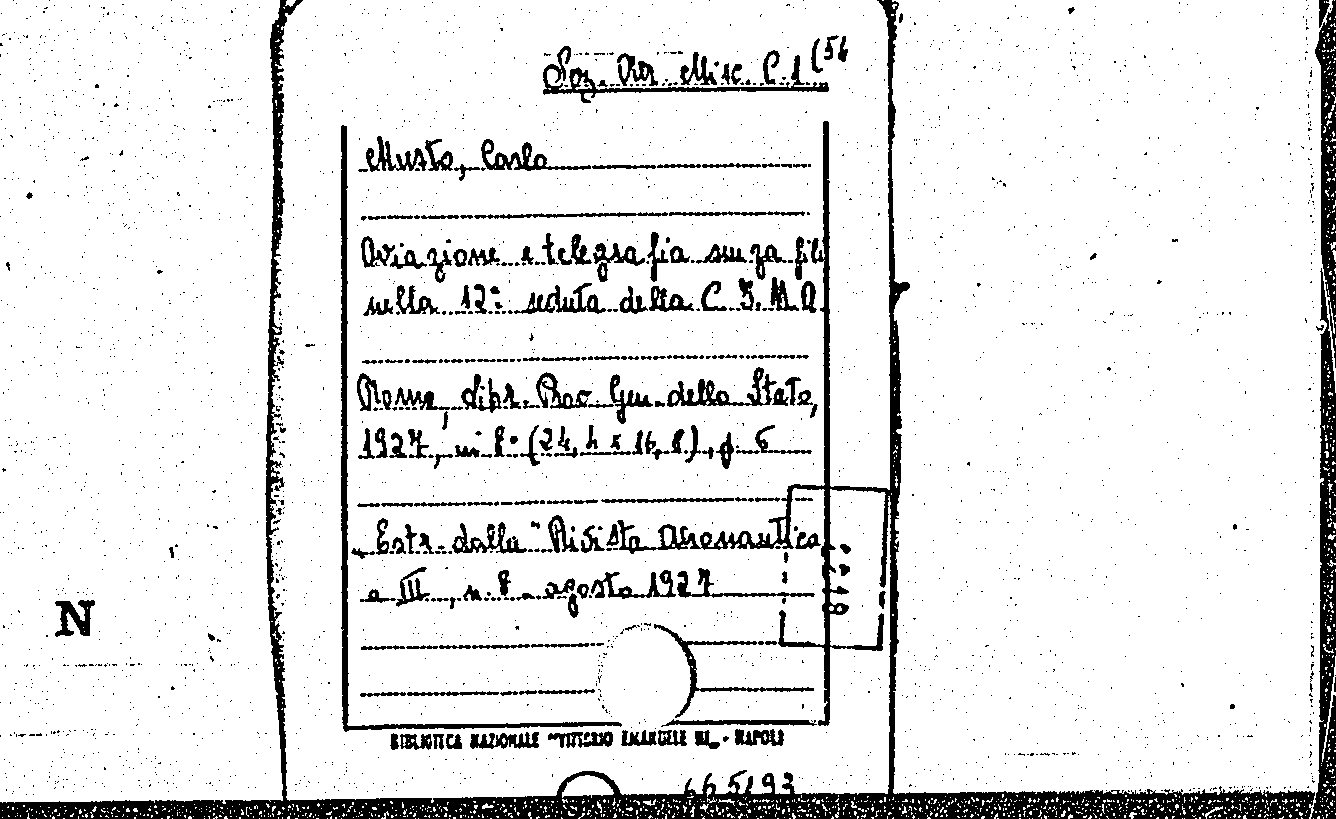 Soz. Misc. C. 1 (54
Musto, Carlo
Aviazione e telegrafia senza fili
nella 12ª seduta della C. I. N. A.
Roma, Libr. Prov. Gen. dello Stato,
1927, in 8° (24,4 x 16,8), p. 6
Estr. dalla "Rivista Aeronautica
a III, n. 8 - agosto 1927
N
BIBLIOTECA NAZIONALE "VITTORIO EMANUELE III" - NAPOLI
665193